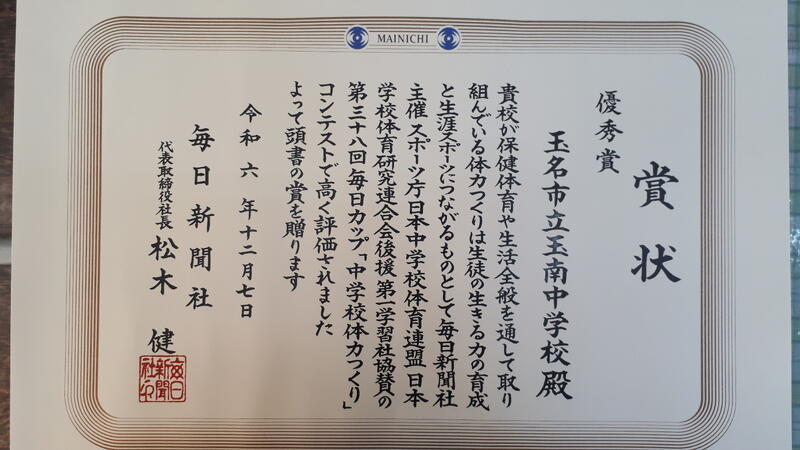 MAINICHI
賞状
優秀賞
玉名市立玉南中学校殿
貴校が保健体育や生活全般を通して取り
組んでいる体力つくりは生徒の生きる力の育成
と生涯スポーツにつながるものとして毎日新聞社
主催 スポーツ庁 日本中学校体育連盟 日本
学校体育研究連合会後援 第一学習社協賛の
第三十八回毎日カップ「中学校体力つくり」
コンテストで高く評価されました
よって頭書の賞を贈ります
令和六年十二月七日
毎日新聞社
代表取締役社長 松木 健
毎日新聞社之印